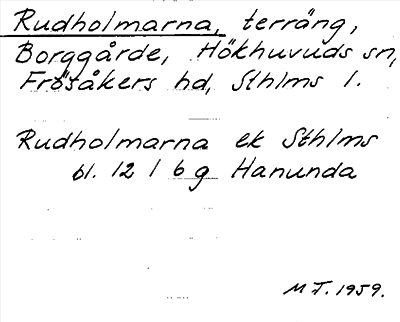 Rudholmarna, terräng,
Borggårde, Hökhuvuds sn,
Frösåkers hd, Sthlms l.
Rudholmarna ek Sthlms
bl. 12 I 6 g Hanunda
M.T. 1959.